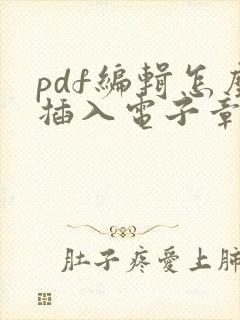 pdf編輯怎麼
插入電子章
肚子疼愛上肺